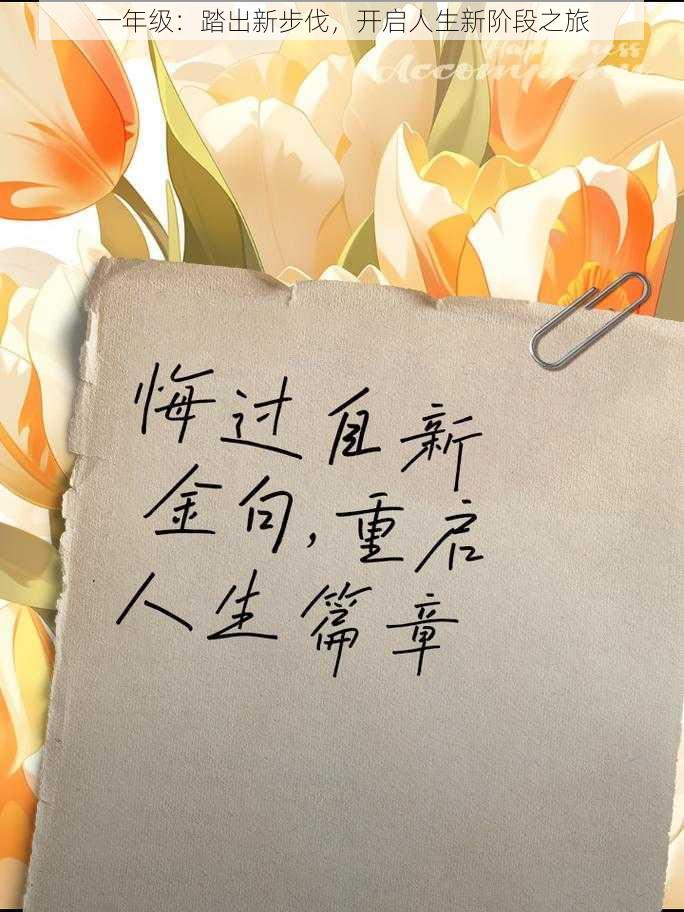 一年级：踏出新步伐，开启人生新阶段之旅
Happiness
Accompanies
悔过自新
金句，重启
人生篇章